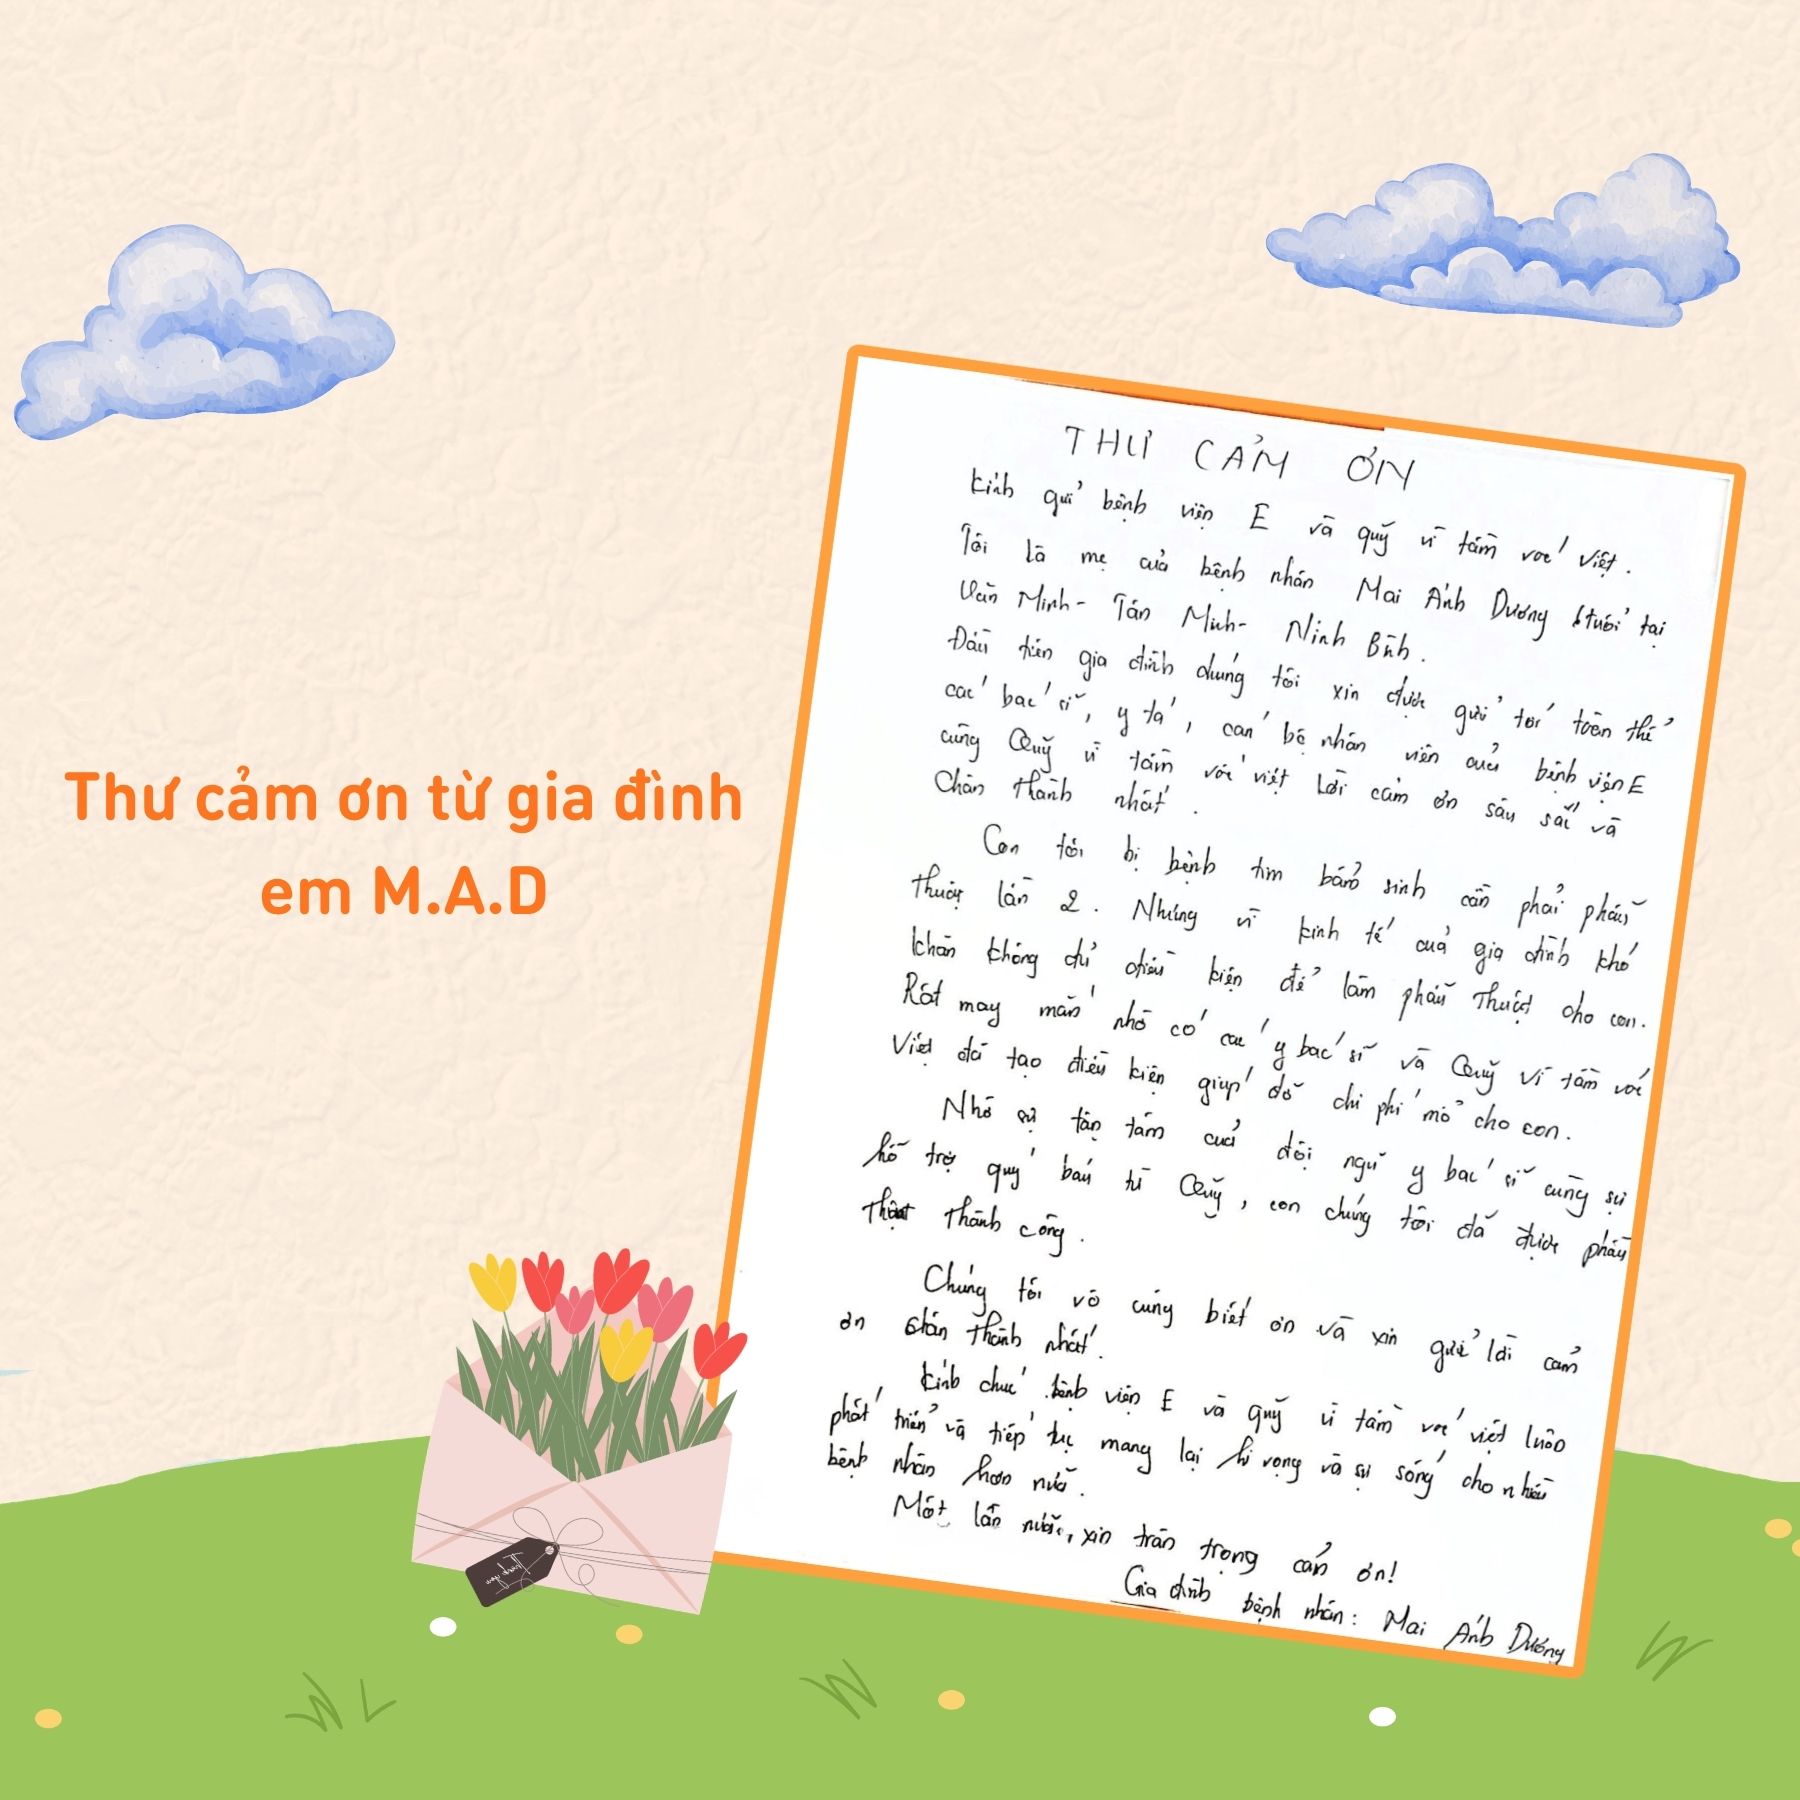 Thư cảm ơn từ gia đình
em M.A.D
THƯ CẢM ƠN
Kính gửi bệnh viện E và quỹ vì tầm vóc Việt.
Tôi là mẹ của bệnh nhân Mai Ánh Dương 6 tuổi tại
Văn Minh - Tân Minh - Ninh Bình.
Đầu tiên gia đình chúng tôi xin được gửi tới toàn thể
các bác sĩ, y tá, cán bộ nhân viên của bệnh viện E
cùng Quỹ vì tầm vóc việt lời cảm ơn sâu sắc và
Chân thành nhất.
Con tôi bị bệnh tim bẩm sinh cần phải phẫu
thuật lần 2. Nhưng vì kinh tế của gia đình khó
khăn không đủ điều kiện để làm phẫu thuật cho con.
Rất may mắn nhờ có các y bác sĩ và Quỹ Vì tầm vóc
Việt đã tạo điều kiện giúp đỡ chi phí mổ cho con.
Nhờ sự tận tâm của đội ngũ y bác sĩ cùng sự
hỗ trợ quý báu từ Quỹ, con chúng tôi đã được phẫu
thuật thành công.
Chúng tôi vô cùng biết ơn và xin gửi lời cảm
ơn chân thành nhất.
Kính chúc bệnh viện E và quỹ vì tầm vóc việt luôn
phát triển và tiếp tục mang lại hi vọng và sự sống cho nhiều
bệnh nhân hơn nữa.
Một lần nữa, xin trân trọng cảm ơn!
Gia đình bệnh nhân: Mai Ánh Dương
Thank you